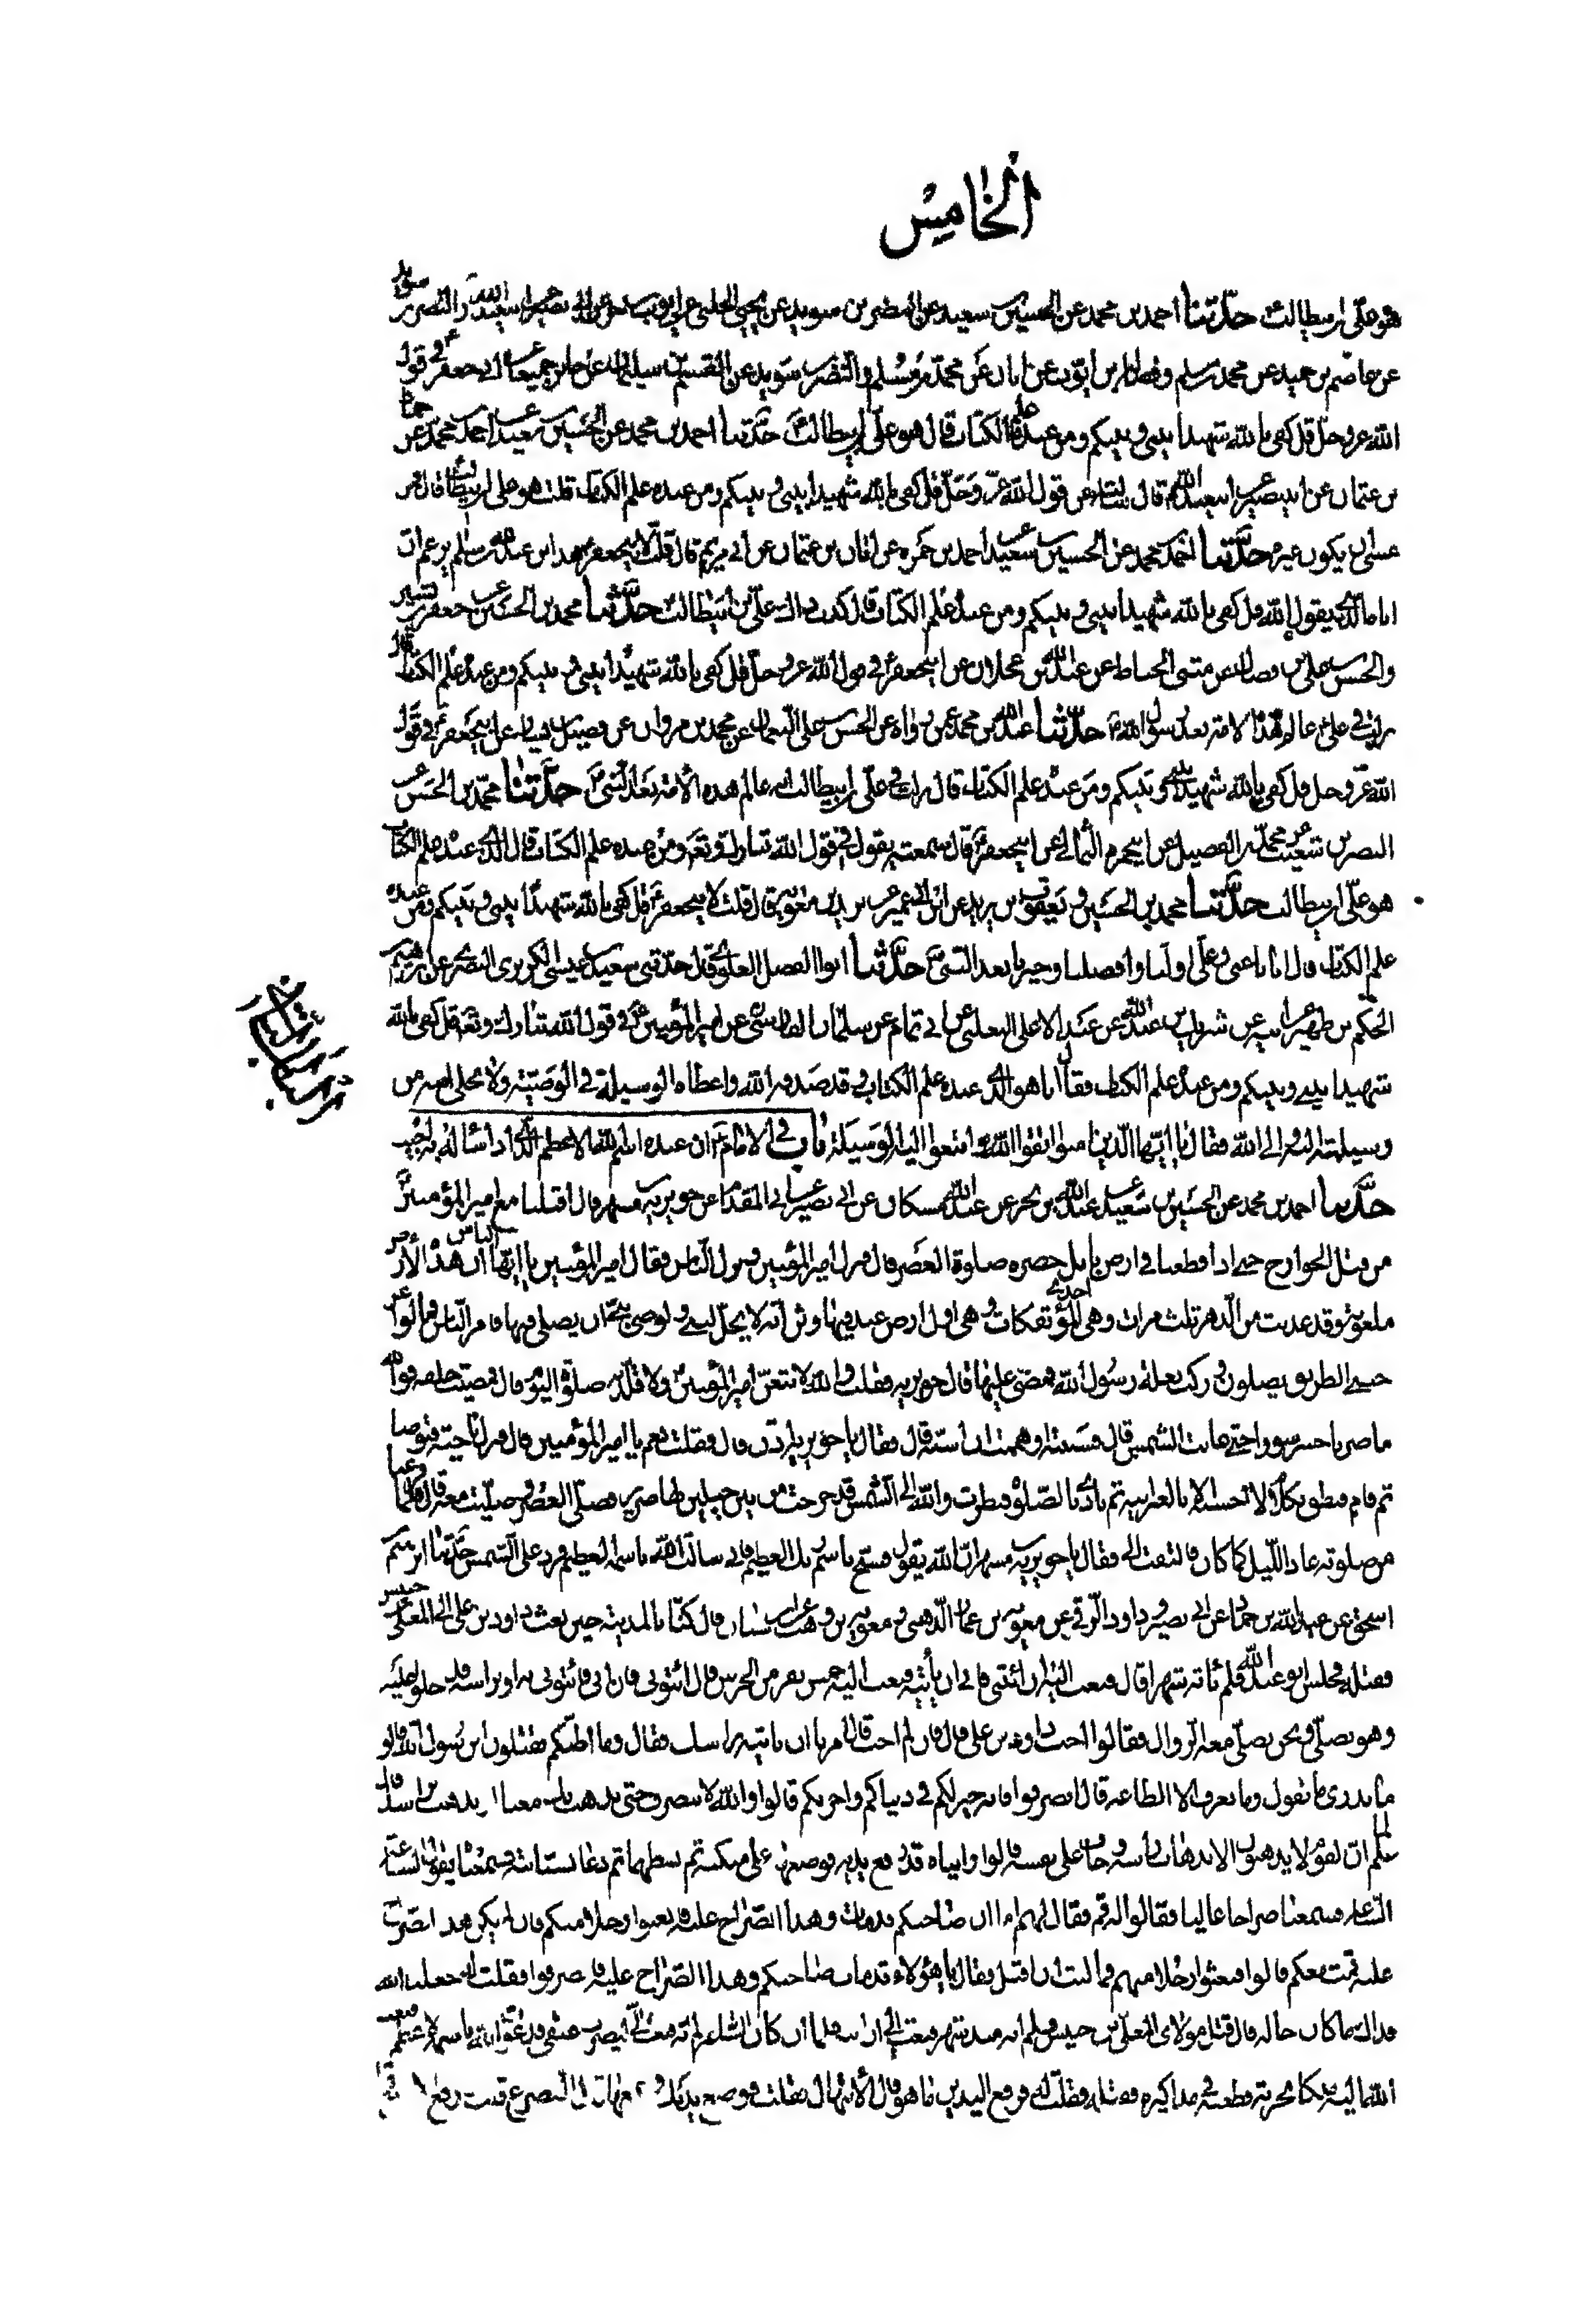 الخامس
هو علي بن ابيطالب حدثنا احمد بن محمد عن الحسين بن سعيد عن النضر بن سويد عن يحيى الحلبي عن ايوب بن حر عن ابي بصير عن ابيعبد الله والنضر بن سويد
عن عاصم بن حميد عن محمد بن مسلم وفضالة بن ايوب عن ابان عن محمد بن مسلم والنضر بن سويد عن القسم بن سليمان عن جابر جميعا عن ابي جعفر ع في قول
الله عز وجل قل كفى بالله شهيدا بيني وبينكم ومن عنده علم الكتاب قال هو علي بن ابيطالب حدثنا احمد بن محمد عن الحسين بن سعيد عن احمد بن محمد عن حماد
بن عثمان عن ابيبصير عن ابيعبد الله قال سالته عن قول الله عز وجل قل كفى بالله شهيدا بيني وبينكم ومن عنده علم الكتاب قلت هو علي بن ابيطالب قال فمن
عسى ان يكون غيره حدثنا احمد بن محمد عن الحسين بن سعيد عن احمد بن حمزه عن ابان بن عثمان عن ابي مريم قال قلت لابيجعفر هذا ابن عبد الله بن سلام يزعم ان
اباه الذي يقول الله قل كفى بالله شهيدا بيني وبينكم ومن عنده علم الكتاب قال كذب ذاك علي بن ابيطالب حدثنا محمد بن الحسين عن جعفر بن بشير
والحسن بن علي بن فضال عن مثنى الحناط عن عبد الله بن عجلان عن ابيجعفر في قول الله عز وجل قل كفى بالله شهيدا بيني وبينكم ومن عنده علم الكتاب قال
نزلت في علي عالم هذه الامة بعد رسول الله حدثنا عبد الله بن محمد عمن رواه عن الحسن بن علي النعمان عن محمد بن مروان عن فضيل بن يسار عن ابيجعفر في قول
الله عز وجل قل كفى بالله شهيدا بيني وبينكم ومن عنده علم الكتاب قال نزلت في علي بن ابيطالب انه عالم هذه الامة بعد النبي حدثنا محمد بن الحسين عن
النضر بن شعيب عن محمد بن الفضيل عن ابيحمزه الثمالي عن ابيجعفر قال سمعته يقول في قول الله تبارك وتعالى ومن عنده علم الكتاب قال الذي عنده علم الكتاب
هو علي بن ابيطالب حدثنا محمد بن الحسين ويعقوب بن يزيد عن ابن ابي عمير عن بريد بن معويه قال قلت لابيجعفر قل كفى بالله شهيدا بيني وبينكم ومن عنده
علم الكتاب قال ايانا عنى وعلي اولنا وافضلنا وخيرنا بعد النبي حدثنا ابوالفضل العلوي قال حدثني سعيد بن عيسى الكريزي البصري عن ابرهيم بن
الحكم بن ظهير عن ابيه عن شريك بن عبد الله عن عبد الاعلى الثعلبي عن ابي تمام عن سلمان الفارسي عن امير المؤمنين في قول الله تبارك وتعالى قل كفى بالله
شهيدا بيني وبينكم ومن عنده علم الكتاب فقال انا هو الذي عنده علم الكتاب وقد صدقه الله واعطاه الوسيلة في الوصية ولا تخلى امته من
وسيلته اليه والى الله فقال يا ايها الذين امنوا اتقوا الله وابتغوا اليه الوسيلة باب في الامام ان عنده اسم الله الاعظم الذي اذا سأله به اجيب
حدثنا احمد بن محمد عن الحسين بن سعيد عن عبد الله بن بحر عن عبد الله بن مسكان عن ابي بصير عن ابي المقدام عن جويريه بن مسهر قال اقبلنا مع امير المؤمنين
من قتل الخوارج حتى اذا قطعنا في ارض بابل حضره صلوة العصر قال فنزل امير المؤمنين ونزل الناس فقال امير المؤمنين يا ايها الناس ان هذه الارض
ملعونة وقد عذبت من الدهر ثلث مرات وهي احدى المؤتفكات وهي اول ارض عبد فيها وثن انه لا يحل لنبي ولوصي نبي ان يصلي فيها فامر الناس فمالوا عن
جنبي الطريق يصلون وركب بغلة رسول الله فمضى عليها قال جويريه فقلت والله لاتبعن امير المؤمنين ولاقلدنه صلوتي اليوم قال فمضيت خلفه فوالله
ما صرنا جسر سورا حتى غابت الشمس قال فسببته او هممت ان اسبه قال فقال يا جويريه اذن قال فقلت نعم يا امير المؤمنين قال فنزل ناحية فتوضا
ثم قام فنطق بكلام لا احسبه الا بالعبرانيه ثم نادى بالصلوة فنظرت والله الى الشمس قد خرجت من بين جبلين لها صرير فصلى العصر وصليت معه فلما فرغنا
من صلوته عاد الليل كما كان فالتفت الي فقال يا جويريه بن مسهر ان الله يقول فسبح باسم ربك العظيم فاني سالت الله باسمه العظيم فرد علي الشمس حدثنا ابرهيم بن
اسحق عن عبد الله بن حماد عن ابي بصير وداود الرقي عن معويه بن عمار الدهني ومعويه بن وهب عن ابن سنان قال كنا بالمدينة حين بعث داود بن علي الى المعلى بن خنيس
فقتله فجلس ابو عبد الله فلم ياته شهرا قال فبعث اليه ان ائتني فابى ان يأتيه فبعث اليه خمس نفر من الحرس قال ائتوني به فان ابى فائتوني به او براسه فدخلوا عليه
وهو يصلي ونحن نصلي معه الزوال فقالوا اجب داود بن علي قال فان لم اجب قالوا امرنا ان ناتيه براسك فقال وما اظنكم تقتلون ابن رسول الله قالوا
ما ندري ما تقول وما نعرف الا الطاعة قال انصرفوا فانه خير لكم في دنياكم واخرتكم قالوا والله لا ننصرف حتى نذهب بك معنا او نذهب براسك قال
فلما علم ان القوم لا يذهبون الا بذهاب رأسه وخاف على نفسه قالوا رايناه قد رفع يديه فوضعهما على منكبيه ثم بسطهما ثم دعا بسبابته فسمعناه يقول الساعة
الساعه فسمعنا صراخا عاليا فقالوا له قم فقال لهم اما ان صاحبكم قد مات وهذا الصراخ عليه فابعثوا رجلا منكم فان لم يكن هذا الصراخ
عليه قمت معكم قالوا فبعثوا رجلا منهم فما لبث ان اقبل فقال يا هؤلاء قد مات صاحبكم وهذا الصراخ عليه فانصرفوا فقلت له جعلنا الله
فداك ما كان حاله قال قتل مولاي المعلى بن خنيس فلم اته منذ شهر فبعث الي ان اتيه فلما ان كان الساعه لم اته فبعث الي ليضرب عنقي فدعوت الله باسمه الاعظم فبعث
الله اليه ملكا بحربة فطعنه في مذاكيره فقتله فقلت له فرفع اليدين ما هو قال الابتهال فقلت فوضع يديك